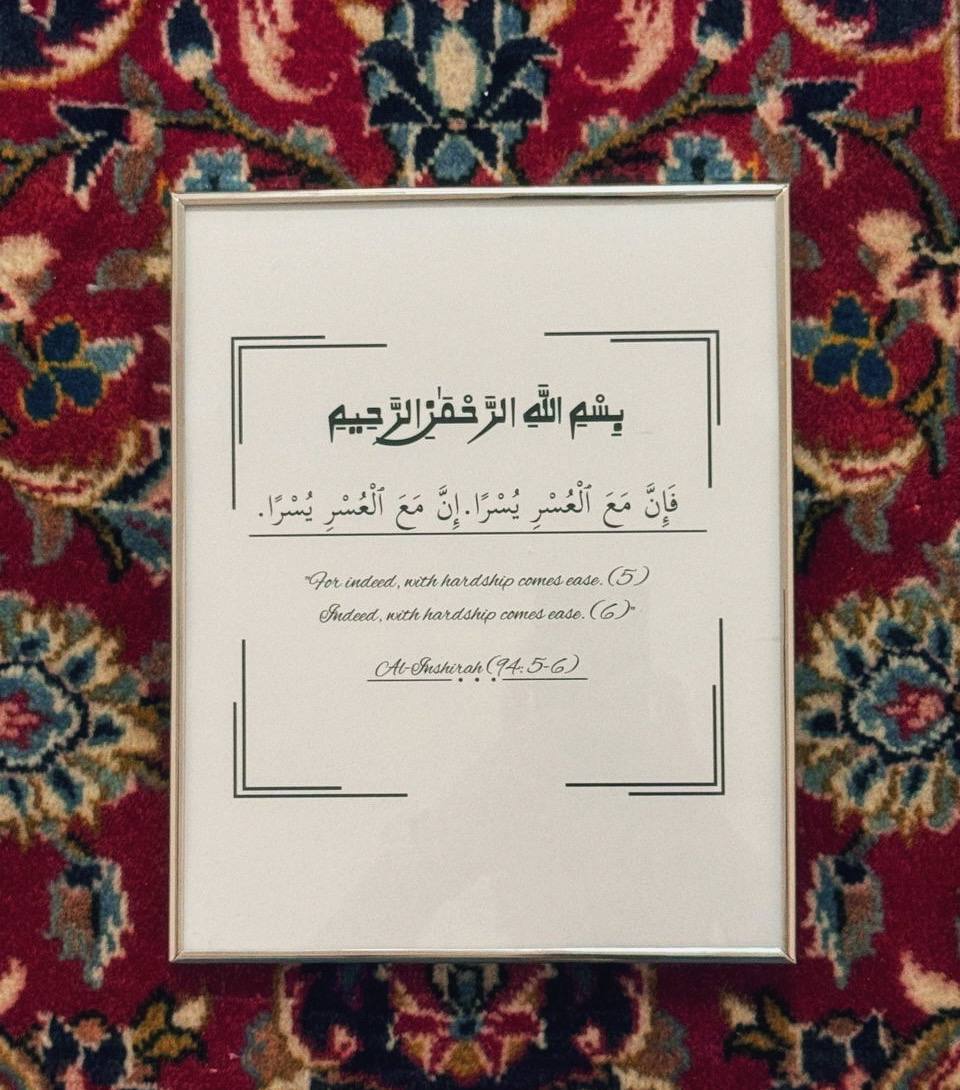 بِسْمِ اللَّهِ الرَّحْمَٰنِ الرَّحِيمِ
فَإِنَّ مَعَ ٱلْعُسْرِ يُسْرًا. إِنَّ مَعَ ٱلْعُسْرِ يُسْرًا.
"For indeed, with hardship comes ease. (5)
Indeed, with hardship comes ease. (6)"
Al-Inshirah (94: 5-6)